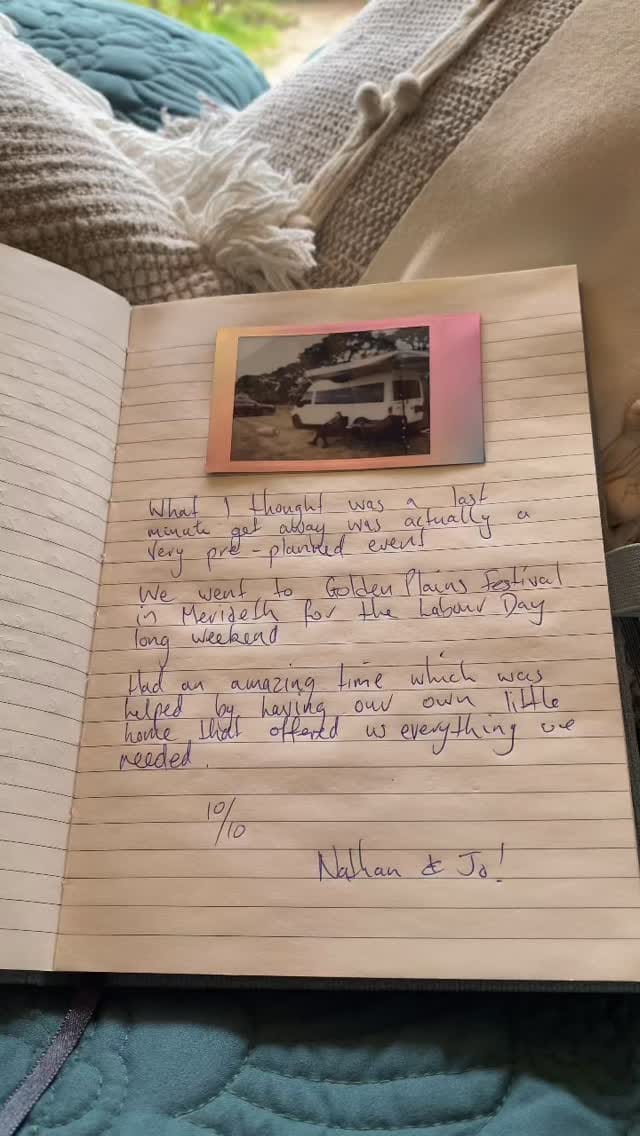 What I thought was a last
minute get away was actually a
very pre-planned event
We went to Golden Plains Festival
in Merideth for the Labour Day
long weekend
Had an amazing time which was
helped by having our own little
home that offered us everything we
needed.
10/10
Nathan & Jo!